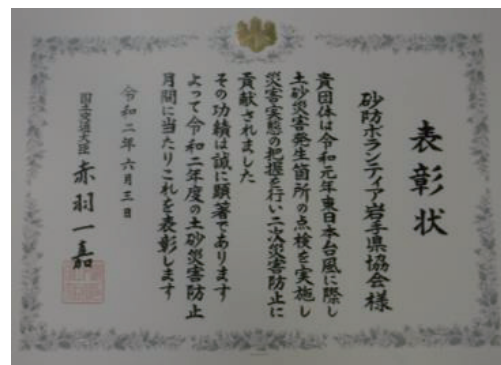 表彰状
砂防ボランティア岩手県協会様
貴団体は令和元年東日本台風に際し
土砂災害発生箇所の点検を実施し
災害実態の把握を行い二次災害防止に
貢献されました
その功績は誠に顕著であります
よって令和二年度の土砂災害防止
月間に当たりこれを表彰します
令和二年六月三日
国土交通大臣 赤羽一嘉